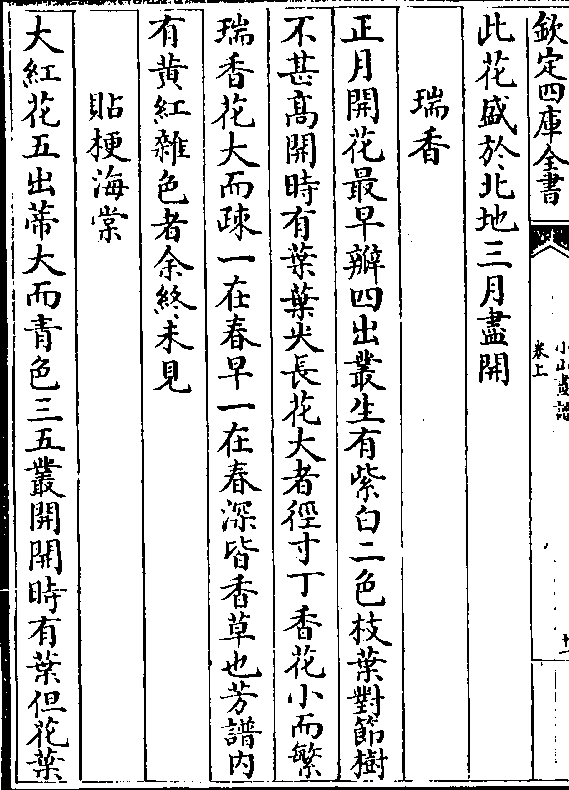 欽定四庫全書
小山畫譜
卷上
此花盛於北地三月盡開
瑞香
正月開花最早瓣四出叢生有紫白二色枝葉對節樹
不甚高開時有葉葉尖長花大者徑寸丁香花小而繁
瑞香花大而疎一在春早一在春深皆香草也芳譜内
有黄紅雜色者余終未見
貼梗海棠
大紅花五出蒂大而青色三五叢開開時有葉但花葉